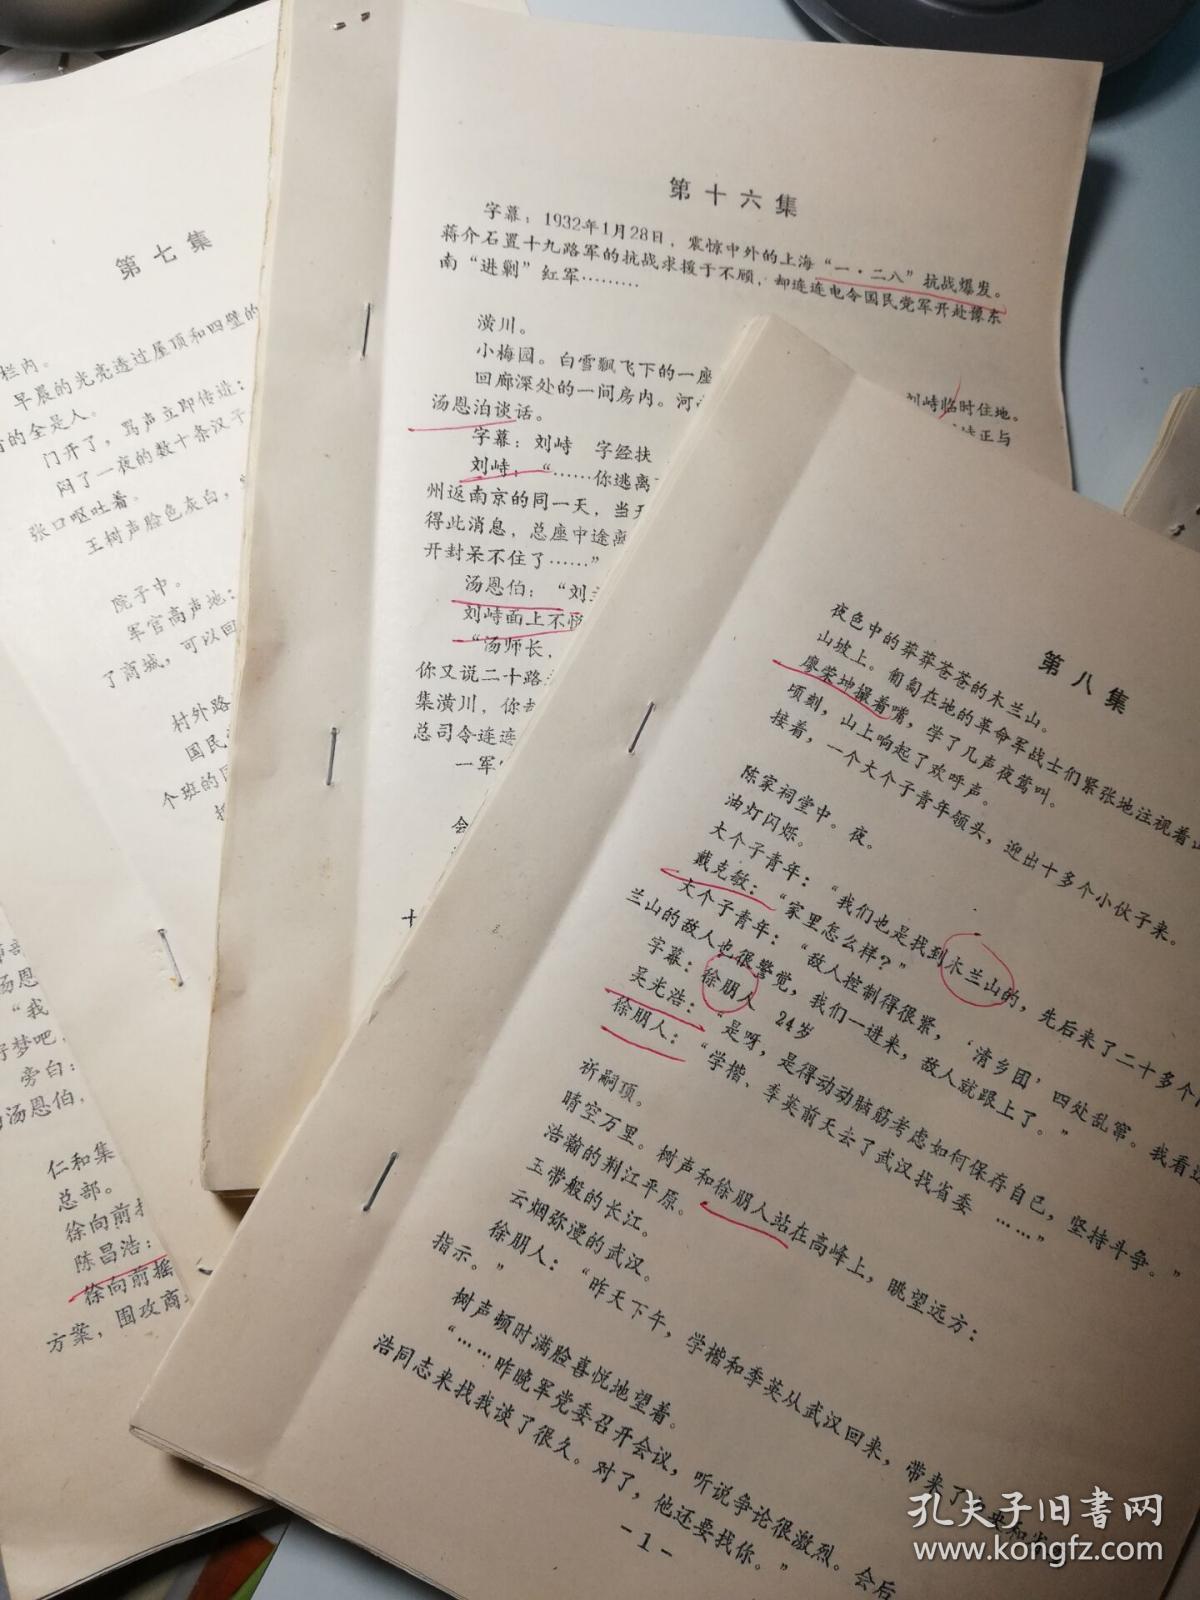 第七集
栏内。
早晨的光亮透过屋顶和四壁的
的全是人。
门开了，骂声立即传进：
闷了一夜的数十条汉子
张口呕吐着。
王树声脸色灰白，
院子中。
军官高声地：
了商城，可以回
村外路
国民
个班的
汤恩
“我
好梦吧，
旁白：
汤恩伯，
仁和集
总部。
徐向前
陈昌浩：
徐向前摇
方案，围攻商
第十六集
字幕：1932年1月28日，震惊中外的上海“一·二八”抗战爆发。
蒋介石置十九路军的抗战求援于不顾，却连连电令国民党军开赴豫东
南“进剿”红军………
潢川。
小梅园。白雪飘飞下的一座
刘峙临时住地。
回廊深处的一间房内。河
峙正与
汤恩泊谈话。
字幕：刘峙 字经扶
刘峙：“……你逃离
州返南京的同一天，当
得此消息，总座中途离
开封呆不住了……”
汤恩伯：“刘
刘峙面上不悦
“汤师长，
你又说二十路
集潢川，你
总司令连连
一军
第八集
夜色中的莽莽苍苍的木兰山。
山坡上。匍匐在地的革命军战士们紧张地注视着山
廖荣坤撮着嘴，学了几声夜莺叫。
顷刻，山上响起了欢呼声。
接着，一个大个子青年领头，迎出十多个小伙子来。
陈家祠堂中。夜。
油灯闪烁。
大个子青年：“我们也是找到木兰山的，先后来了二十多个
戴克敏：“家里怎么样？”
大个子青年：“敌人控制得很紧，‘清乡团’四处乱窜。我看这
兰山的敌人也很警觉，我们一进来，敌人就跟上了。”
字幕：徐朋人 24岁
吴光浩：“是呀，是得动动脑筋考虑如何保存自己，坚持斗争。”
徐朋人：“学楷、季英前天去了武汉找省委……”
祈嗣顶。
晴空万里。树声和徐朋人站在高峰上，眺望远方：
浩瀚的荆江平原。
玉带般的长江。
云烟弥漫的武汉。
徐朋人：“昨天下午，学楷和季英从武汉回来，带来了
指示。”
树声顿时满脸喜悦地望着。
“……昨晚军党委召开会议，听说争论很激烈。会后
浩同志来找我谈了很久。对了，他还要找你。”
-1-
孔夫子旧书网
www.kongfz.com